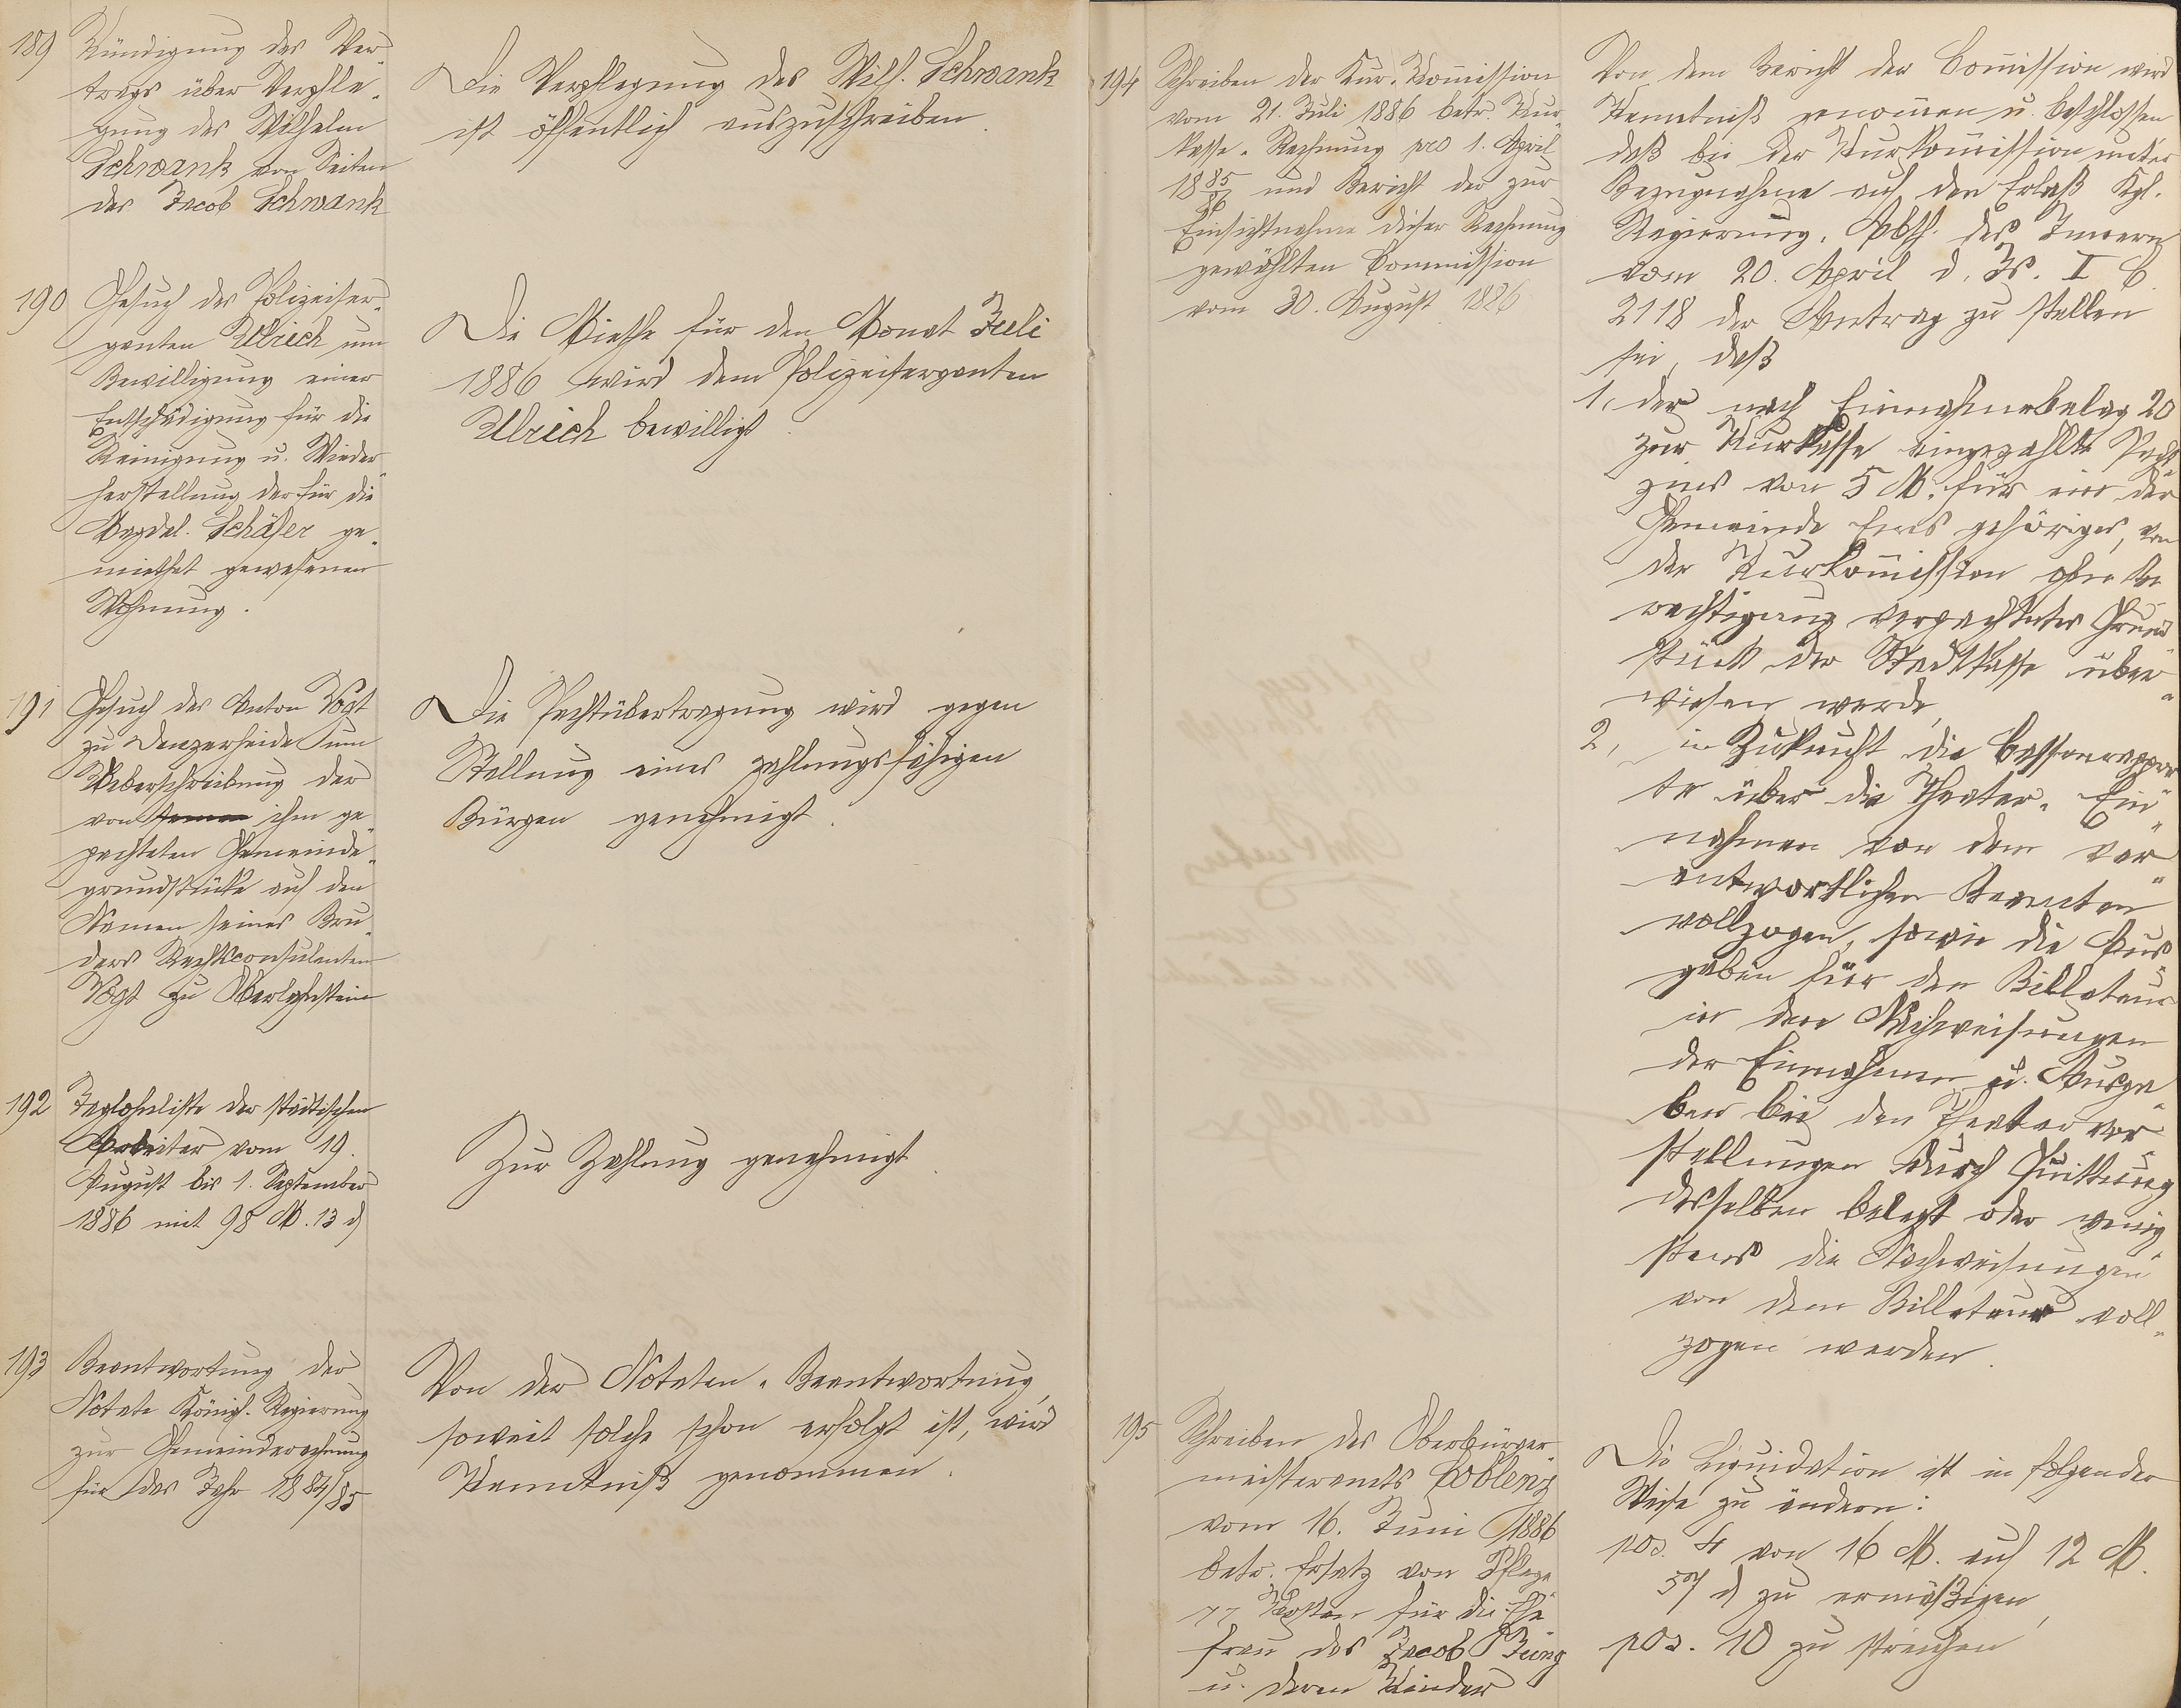 189
Kündigung des Ver-
trags über Verpfle-
gung des Wilhelm
Schwank von Seiten
des Jacob Schwank
Die Verpflegung des Wilh. Schwank
ist öffentlich auszuschreiben.
190
Gesuch des Polizeiser-
genten Ulrich um
Bewilligung einer
Entschädigung für die
Reinigung u. Wieder-
herstellung der für die
Magdal. Schäfer ge-
miethet gewesenen
Wohnung.
Die Miethe für den Monat Juli
1886 wird dem Polizeisergenten
Ulrich bewilligt.
191
Gesuch des Anton Vogt
zu Denzerheide um
Ueberschreibung der
von ihm ge-
pachteten Gemeinde-
grundstücke auf den
Namen seines Bru-
ders Rechtsconsulenten
Vogt zu Oberlahnstein
Die Pachtübertragung wird gegen
Stellung eines zahlungsfähigen
Bürgen genehmigt.
192
Taglohnliste der städtischen
Arbeiter vom 19.
August bis 1. September
1886 mit 98 M. 13 d
Zur Zahlung genehmigt.
193
Beantwortung der
Notate Königl. Regierung
zur Gemeinderechnung
für das Jahr 1884/85
Von der Notaten-Beantwortung,
soweit solche schon erfolgt ist, wird
Kenntniß genommen.
194
Schreiben der Kur-Komission
vom 21. Juli 1886 betr. Kur-
kasse-Rechnung pro 1. April
1885/86 und Bericht der zur
Einsichtnahme dieser Rechnung
gewählten Commission
vom 30. August 1886.
Von dem Bericht der Comission wird
Kenntniß genomen u. beschlossen
daß bei der Kurkomission unter
Bezugnahme auf den Erlaß Kgl.
Regierung, Abth. des Innern
vom 20. April d. Js. I C.
2118 der Antrag zu stellen
sei, daß
1, der nach Einnahmebelag 20
zur Kurkasse eingezahlte Pacht-
zins von 5 M. für ein der
Gemeinde Ems gehöriges, von
der Kurkomission ohne Be-
rechtigung verpachtetes Grund-
stück der Stadtkasse über-
wiesen werde,
2, in Zukunft die Cassenrappor-
te über die Theater-Ein-
nahmen von dem ver-
antwortlichen Beamten
vollzogen, sowie die Aus-
gaben für den Billeteur
in den Nachweisungen
der Einnahmen u. Ausga-
ben bei den Theatervor-
stellungen durch Quittung
desselben belegt oder wenig-
stens die Nachweisungen
von dem Billeteur voll-
zogen werden.
195
Schreiben des Oberbürger-
meisteramts Coblenz
vom 16. Juni 1886
betr. Ersatz von Pflege
Kosten für die Ehe-
frau des Jacob Jung
u. deren Kinder
Die Liquidation ist in folgender
Weise zu ändern:
pos. 4 von 16 M. auf 12 M.
57 d zu ermäßigen,
pos. 10 zu streichen